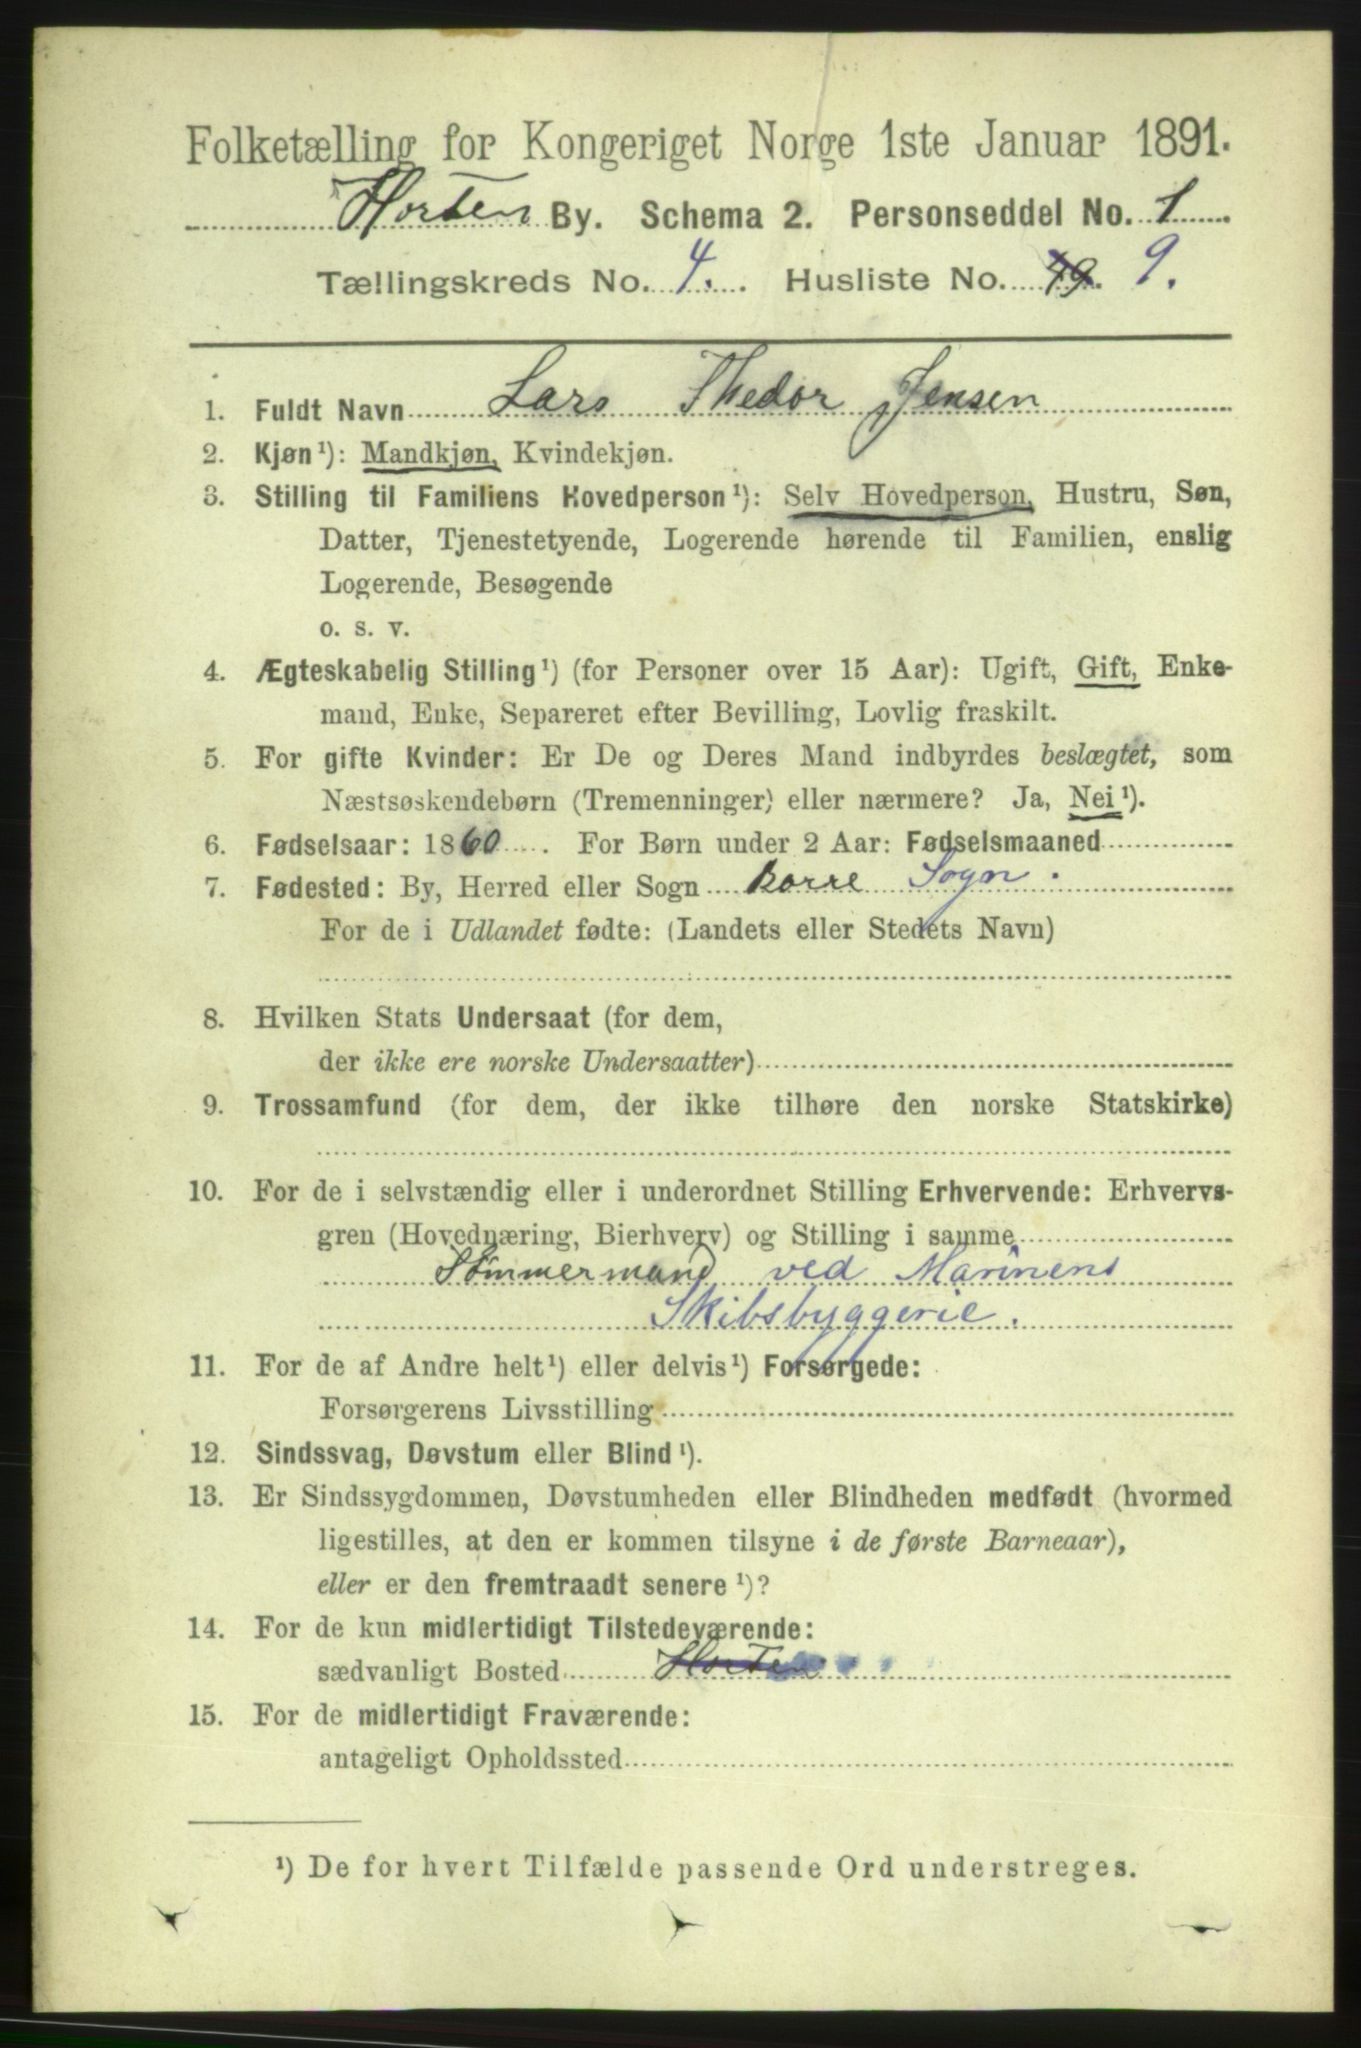 Folketælling for Kongeriget Norge 1ste Januar 1891.
Horten By. Schema 2. Personseddel No. 1
Tællingskreds No. 4. Husliste No. 49. 9.
1. Fuldt Navn Lars Thedor Jensen
2. Kjøn¹): Mandkjøn, Kvindekjøn.
3. Stilling til Familiens Hovedperson¹): Selv Hovedperson, Hustru, Søn,
Datter, Tjenestetyende, Logerende hørende til Familien, enslig
Logerende, Besøgende
o. s. v.
4. Ægteskabelig Stilling¹) (for Personer over 15 Aar): Ugift, Gift, Enke-
mand, Enke, Separeret efter Bevilling, Lovlig fraskilt.
5. For gifte Kvinder: Er De og Deres Mand indbyrdes beslægtet, som
Næstsøskendebørn (Tremenninger) eller nærmere? Ja, Nei¹).
6. Fødselsaar: 1860. For Børn under 2 Aar: Fødselsmaaned
7. Fødested: By, Herred eller Sogn Borre Sogn.
For de i Udlandet fødte: (Landets eller Stedets Navn)
8. Hvilken Stats Undersaat (for dem,
der ikke ere norske Undersaatter)
9. Trossamfund (for dem, der ikke tilhøre den norske Statskirke)
10. For de i selvstændig eller i underordnet Stilling Erhvervende: Erhvervs-
gren (Hovednæring, Bierhverv) og Stilling i samme
Tømmermand ved Marinens
Skibsbyggerie.
11. For de af Andre helt¹) eller delvis¹) Forsørgede:
Forsørgerens Livsstilling
12. Sindssvag, Døvstum eller Blind¹).
13. Er Sindssygdommen, Døvstumheden eller Blindheden medfødt (hvormed
ligestilles, at den er kommen tilsyne i de første Barneaar),
eller er den fremtraadt senere¹)?
14. For de kun midlertidigt Tilstedeværende:
sædvanligt Bosted Horten
15. For de midlertidigt Fraværende:
antageligt Opholdssted
¹) De for hvert Tilfælde passende Ord understreges.